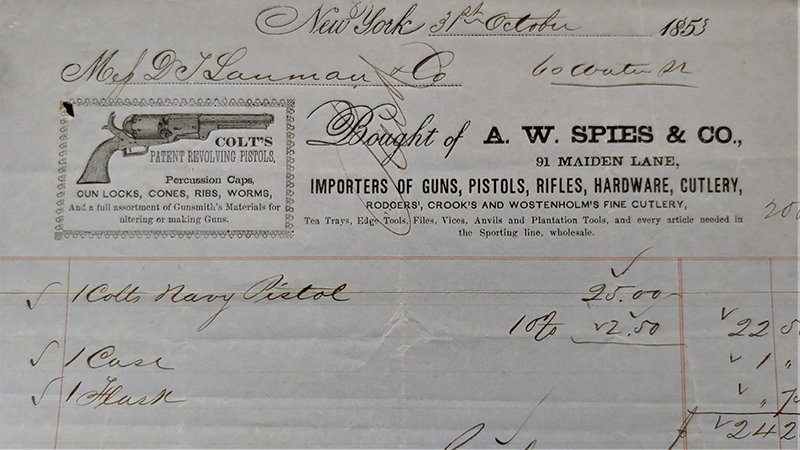 New York 31st October 1853
Mess D T Lanman & Co 60 Water St
COLT'S
PATENT REVOLVING PISTOLS,
Percussion Caps,
GUN LOCKS, CONES, RIBS, WORMS,
And a full assortment of Gunsmith's Materials for
altering or making Guns.
Bought of A. W. SPIES & CO.,
91 MAIDEN LANE,
IMPORTERS OF GUNS, PISTOLS, RIFLES, HARDWARE, CUTLERY,
RODGERS', CROOK'S AND WOSTENHOLM'S FINE CUTLERY,
Tea Trays, Edge Tools, Files, Vices, Anvils and Plantation Tools, and every article needed in
the Sporting line, wholesale.
1 Colts Navy Pistol 25.00
10% 2.50 22 5
1 Case 1 "
1 Flask " 7
$ 24 2